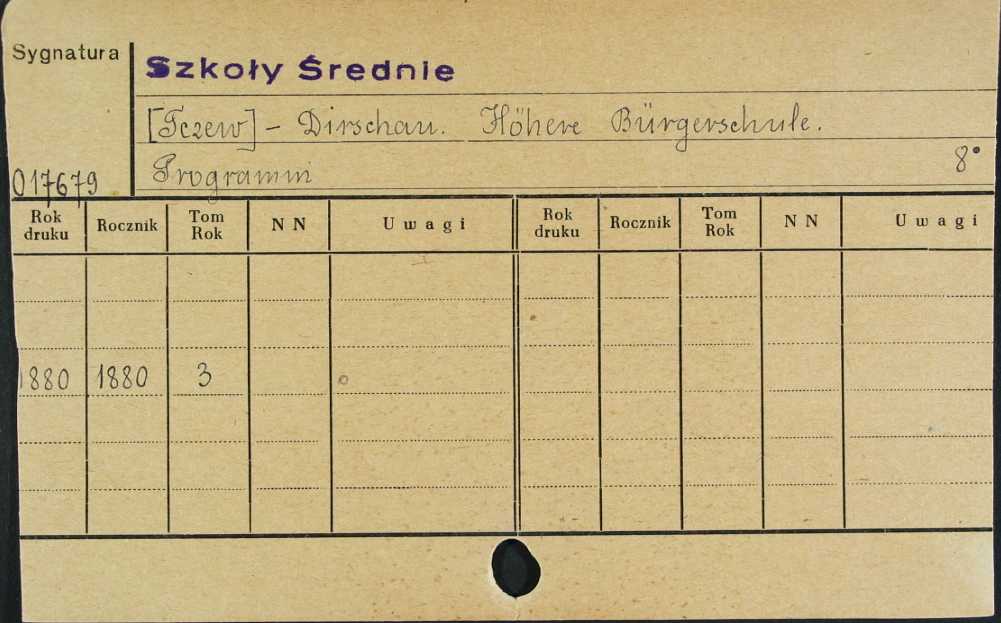 Sygnatura
Szkoły Średnie
[Tczew] - Dirschau. Höhere Bürgerschule.
017679 Programm 8°
Rok druku Rocznik Tom Rok N N Uwagi Rok druku Rocznik Tom Rok N N Uwagi
1880 1880 3